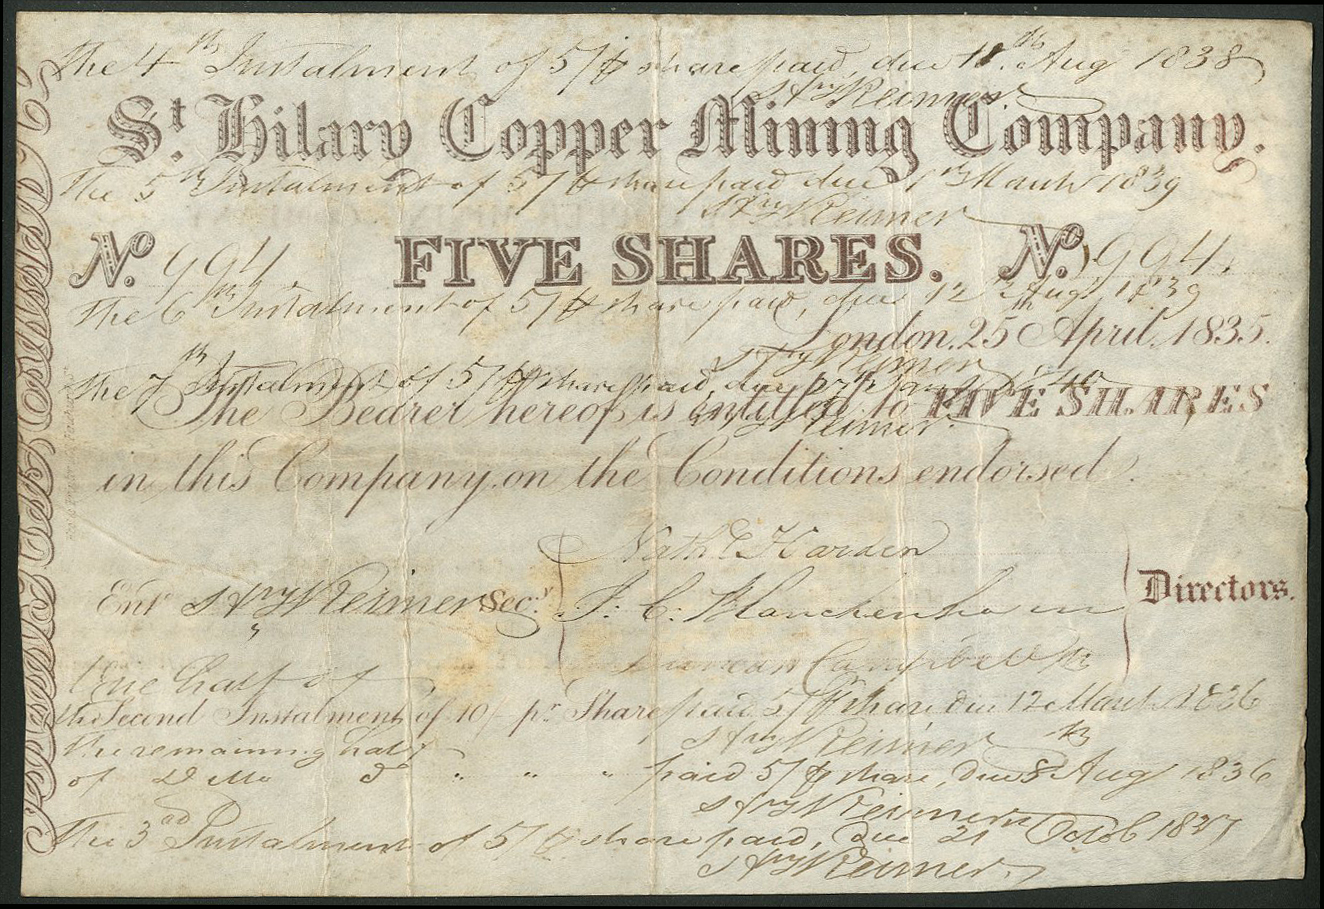 The 4th Instalment of 5/ ⅌ share paid, due 11th Aug 1838
Hy Reimer
St. Hilary Copper Mining Company.
The 5th Instalment of 5/ ⅌ share paid due 1st March 1839
Hy Reimer
No. 994 FIVE SHARES. No. 994.
The 6th Instalment of 5/ ⅌ share paid, due 12th Augt 1839
London, 25th April, 1835.
Hy Reimer
The 7th Instalment of 5/ ⅌ share paid, due 1840
The Bearer hereof is entitled to FIVE SHARES
Hy Reimer
in this Company, on the Conditions endorsed.
Harden
Entd Hy Reimer Secy. Directors.
Duncan Campbell
One half of
the Second Instalment of 10/- pr Share paid 5/ ⅌ share, due 12 March 1836
Hy Reimer
the remaining half
of Do " " " paid 5/ ⅌ share, due 8th Aug 1836
Hy Reimer
The 3rd Instalment of 5/ ⅌ share paid, due 21 Octob 1837
Hy Reimer